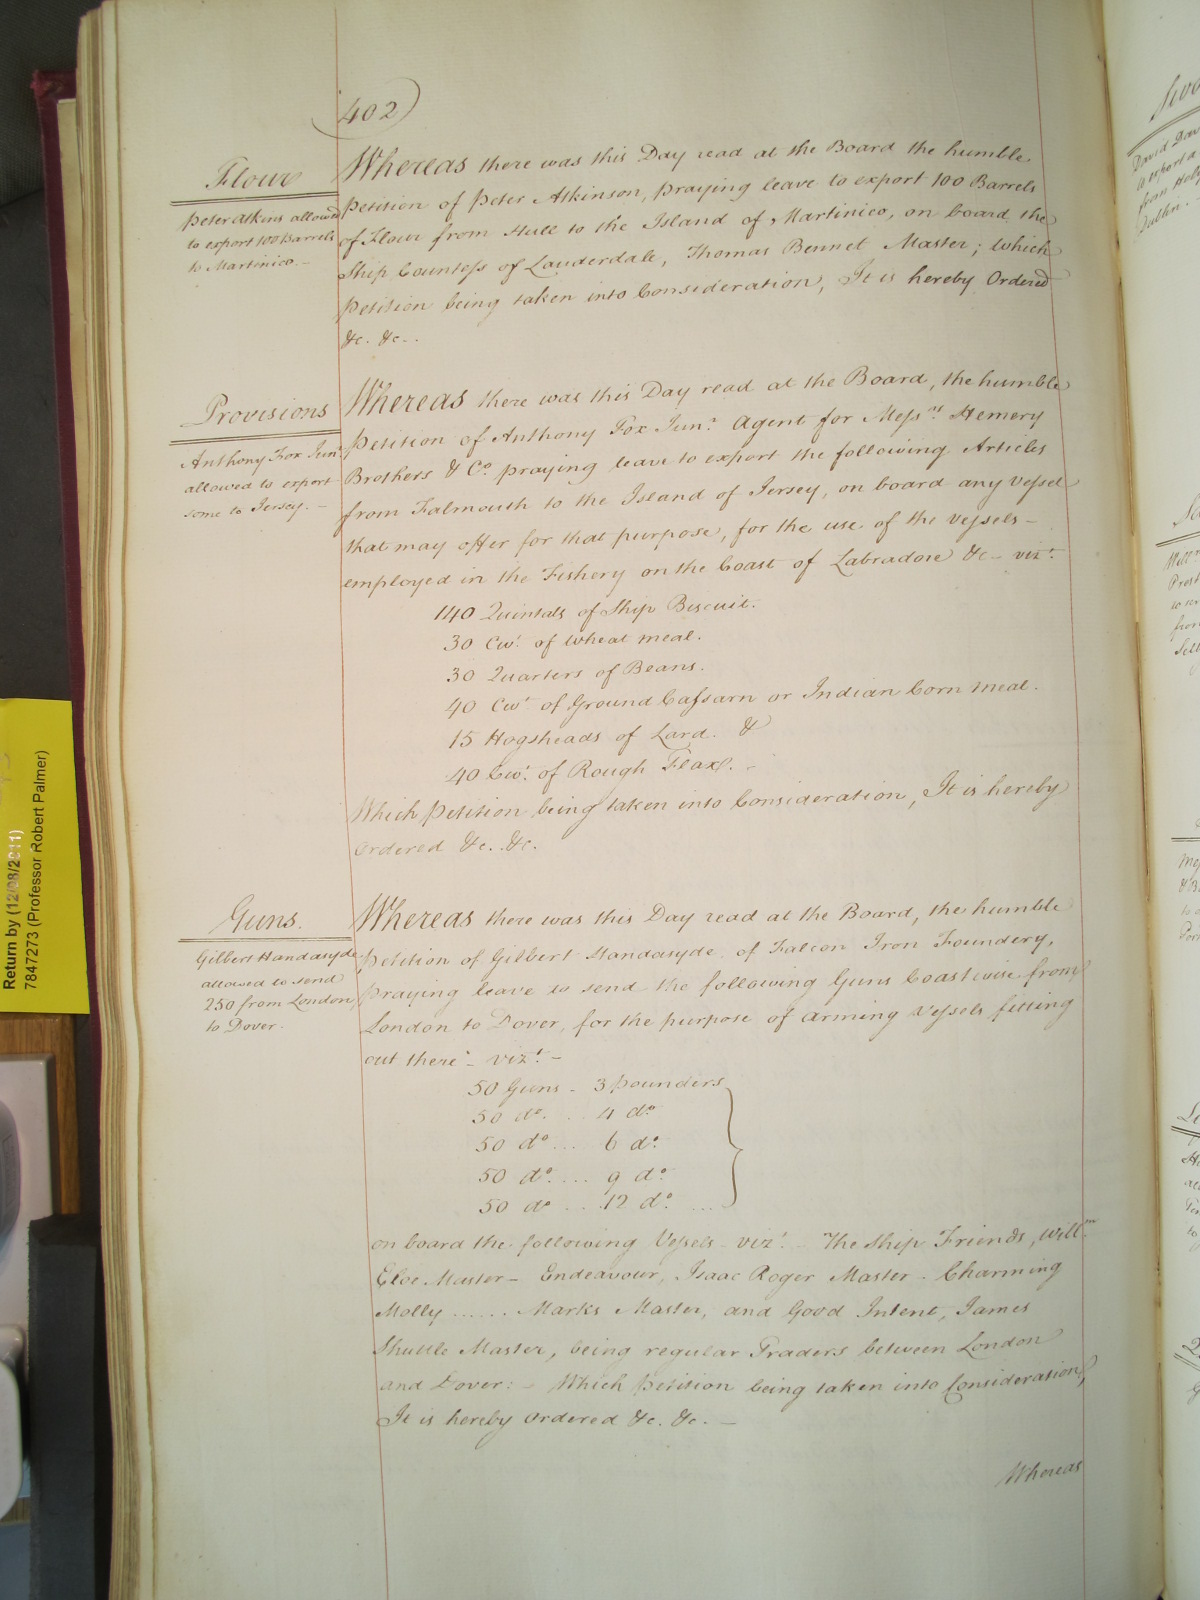 402
Flour
Peter Atkins allowed
to export 100 Barrels
to Martinico.
Whereas there was this Day read at the Board the humble
Petition of Peter Atkinson, praying leave to export 100 Barrels
of Flour from Hull to the Island of Martinico, on board the
Ship Countess of Lauderdale, Thomas Bennet Master; which
Petition being taken into Consideration, It is hereby Ordered
&c. &c.
Provisions
Anthony Fox Junr.
allowed to export
some to Jersey.
Whereas there was this Day read at the Board, the humble
Petition of Anthony Fox Junr. Agent for Messrs Hemery
Brothers & Co. praying leave to export the following Articles
from Falmouth to the Island of Jersey, on board any Vessel
that may offer for that purpose, for the use of the Vessels
employed in the Fishery on the Coast of Labradore &c vizt.
140 Quintals of Ship Biscuit.
30 Cwt. of Wheat meal.
30 Quarters of Beans.
40 Cwt of Ground Cassarn or Indian Corn meal.
15 Hogsheads of Lard. &
40 Cwt. of Rough Flax.
Which Petition being taken into Consideration, It is hereby
Ordered &c. &c.
Guns.
Gilbert Handasyde
allowed to send
250 from London
to Dover.
Whereas there was this Day read at the Board, the humble
Petition of Gilbert Handasyde of Falcon Iron Foundery,
praying leave to send the following Guns Coastwise from
London to Dover, for the purpose of arming Vessels fitting
out there - vizt. -
50 Guns - 3 pounders
50 do. .. 4 do.
50 do. ... 6 do.
50 do. .... 9 do.
50 do ... 12 do. ...
on board the following Vessels vizt. - The Ship Friends, Willm.
Eloe Master - Endeavour, Isaac Roger Master - Charming
Molly ...... Marks Master, and Good Intent, James
Shuttle Master, being regular Traders between London
and Dover: - Which Petition being taken into Consideration,
It is hereby Ordered &c. &c. -
Whereas
Return by (12/08/2011)
7847273 (Professor Robert Palmer)